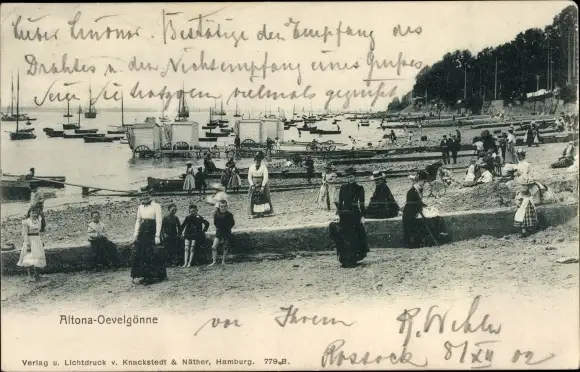 Lieber Lindner. Bestätige den Empfang des
Drahtes u. den Nichtempfang eines Grußes
Seien Sie trotzdem vielmals gegrüßt
von Ihrem R. Wehl
Rostock 8/XII 02
Altona-Oevelgönne
Verlag u. Lichtdruck v. Knackstedt & Näther, Hamburg. 779 B.